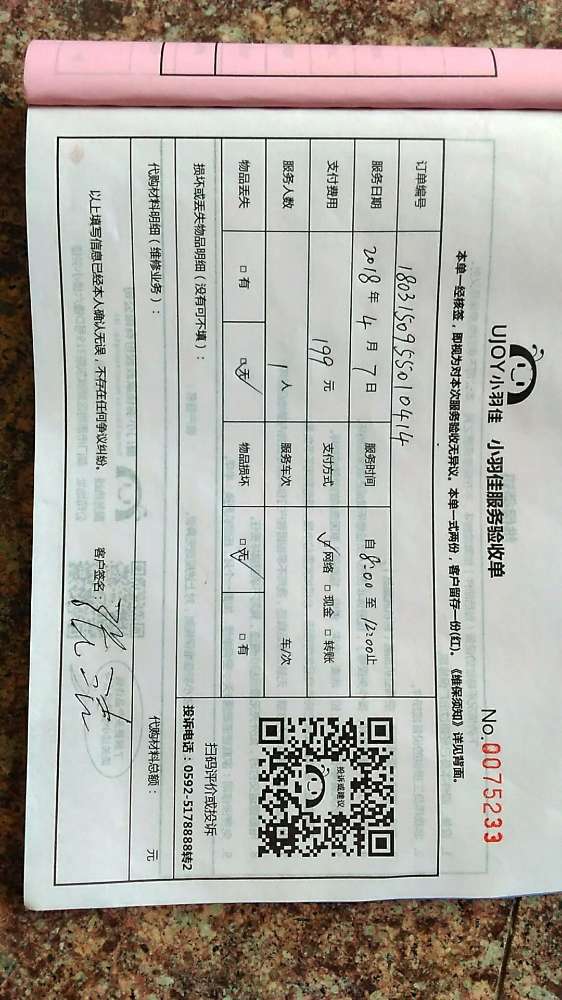 UJOY小羽佳 小羽佳服务验收单
No.0075233
本单一经核签，即视为对本次服务验收无异议。本单一式两份，客户留存一份(红)。《维保须知》详见背面。
订单编号 1803150955010414
服务日期 2018年4月7日 服务时间 自8:00至12:00止
支付费用 199元 支付方式 ☑网络 □现金 □转账
服务人数 1人 服务车次 车/次
物品丢失 □有 ☑无 物品损坏 ☑无 □有
投诉或建议
扫码评价或投诉
投诉电话：0592-5178888转2
损坏或丢失物品明细（没有可不填）：
代购材料明细（维修业务）： 代购材料总额： 元
以上填写信息已经本人确认无误，不存在任何争议纠纷。 客户签名：